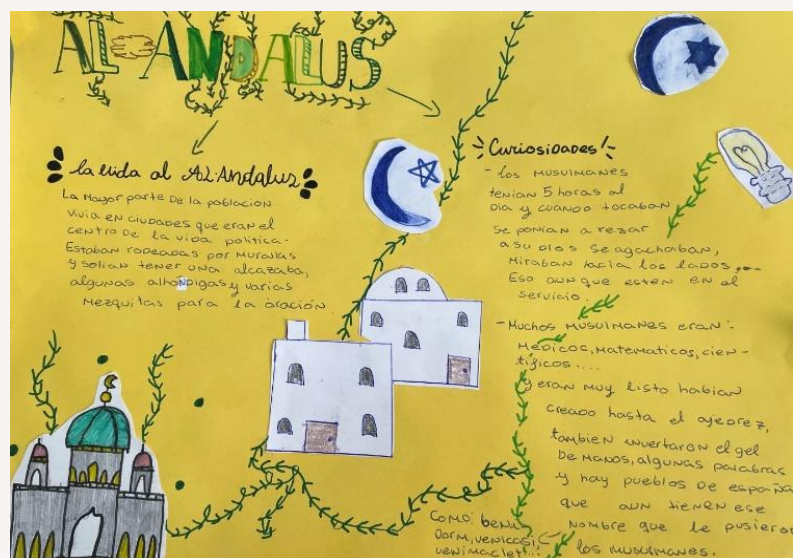 AL-ANDALUS
la vida al AL-Andaluz
La Mayor parte De la población
vivia en ciudades que eran el
centro De la vida politica.
Estaban rodeadas por murallas
y solian tener una alcazaba,
algunas alhondigas y varias
Mezquitas para la oración.
Curiosidades
- Los MUSULMANES
tenian 5 horas al
Dia y cuando tocaban
Se ponian a rezar
a su Dios se agachaban,
Miraban hacia los lados,...
Eso aunque esten en el
servicio.
- Muchos MUSULMANES eran:
Medicos, Matematicos, cien-
tificos....
y eran muy listo habian
creado hasta el ajedrez,
tambien inventaron el gel
De manos, algunas palabras
y hay pueblos de españa
que aun tienen ese
nombre que le pusieron
los musulmanes.
Como: beni
Dorm, venicasi,
venimaclet...